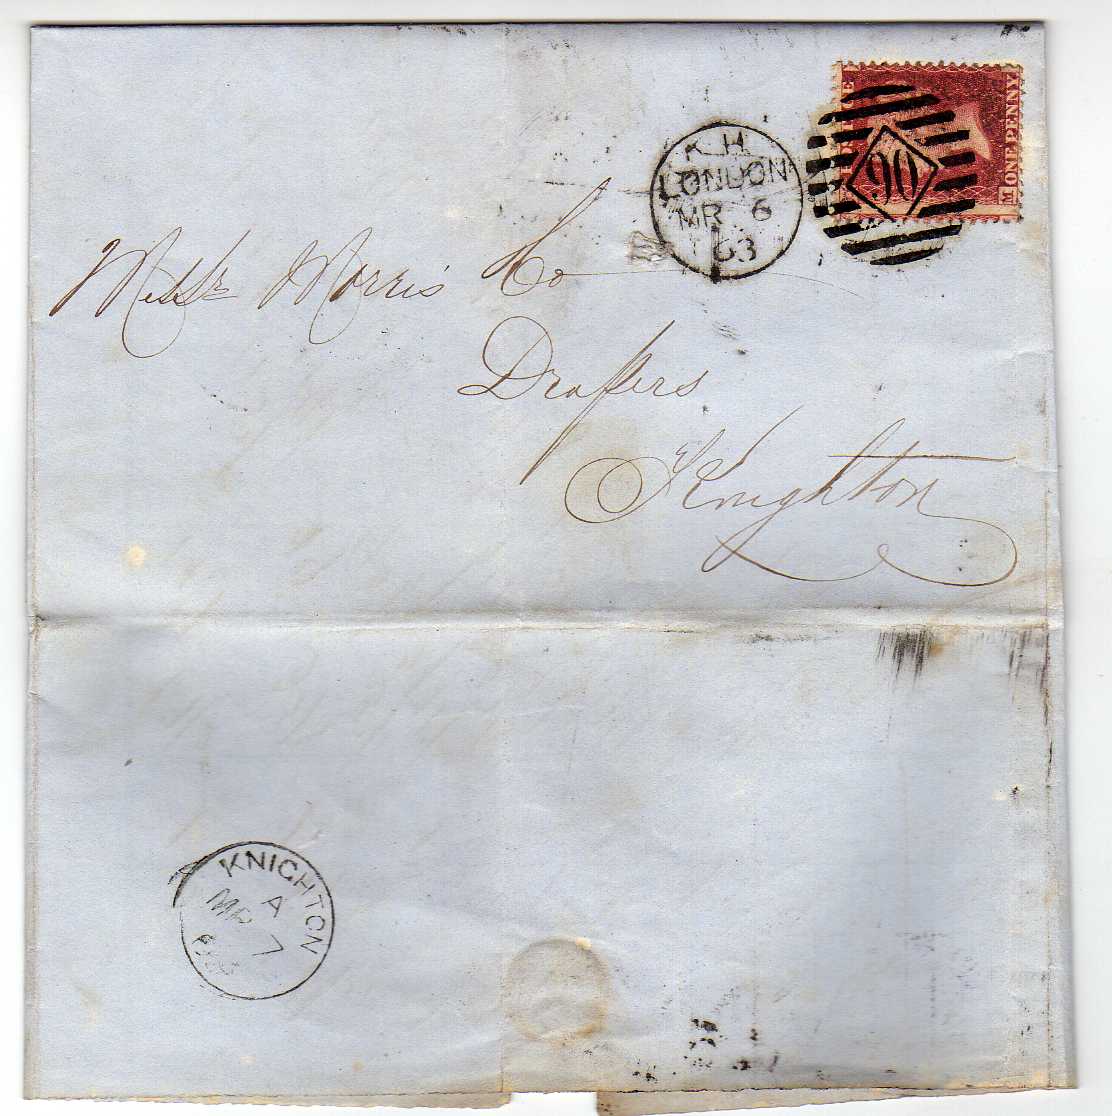 K.H.
LONDON
MR 6
63
90
ONE PENNY
M
Messrs Morris & Co
Drapers
Knighton
KNIGHTON
A
MR 7